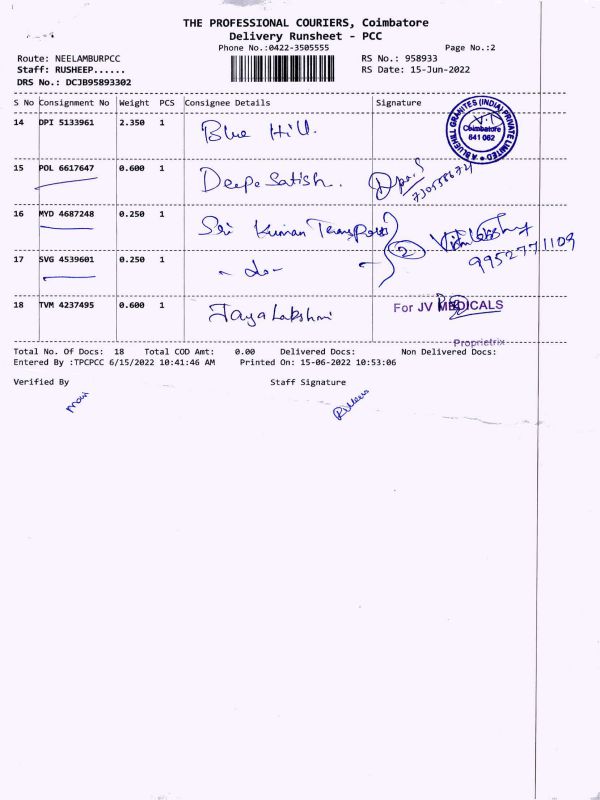 THE PROFESSIONAL COURIERS, Coimbatore
Delivery Runsheet - PCC
Phone No.:0422-3505555 Page No.:2
Route: NEELAMBURPCC RS No.: 958933
Staff: RUSHEEP...... RS Date: 15-Jun-2022
DRS No.: DCJB95893302
S No Consignment No Weight PCS Consignee Details Signature
14 DPI 5133961 2.350 1 Blue Hill.
A BLUEHILL GRANITES (INDIA) PRIVATE LIMITED
Coimbatore
641 062
15 POL 6617647 0.600 1 Deepe Satish.
16 MYD 4687248 0.250 1 Sri Kuman Transports 2
9952771109
17 SVG 4539601 0.250 1 - do -
18 TVM 4237495 0.600 1 Jaya Lakshmi For JV MEDICALS
Proprietrix
Total No. Of Docs: 18 Total COD Amt: 0.00 Delivered Docs: Non Delivered Docs:
Entered By :TPCPCC 6/15/2022 10:41:46 AM Printed On: 15-06-2022 10:53:06
Verified By Staff Signature